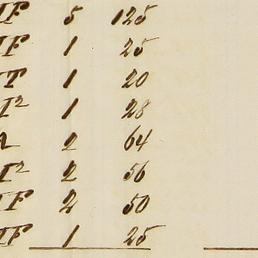 IF 5 125
IF 1 25
IT 1 20
I² 1 28
A 2 64
I² 2 56
IF 2 50
IF 1 25